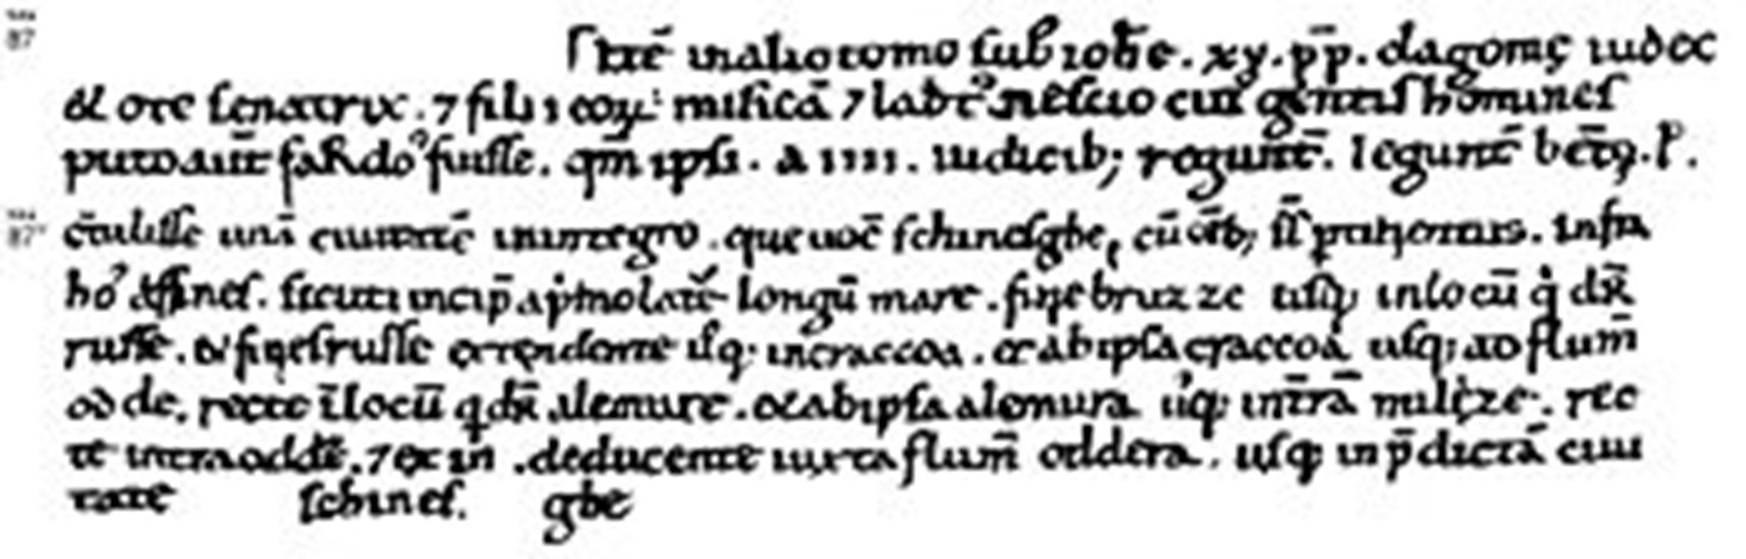 87 Itē inaliotomo sub ioħe . xv . p̄p . dagomę iudex
& ote senatrix . 7 filii eoꝝ . misicā 7 lab̄t nescio cuiꝰ gentis homines
puto aut̄ sardos fuisse . qm̄ ipsi . a iiii . iudicib; regunt̄ . legunt̄ beatō . P .
87 c̄tulisse unā ciuitatē inintegro . que uoc̄ schinesgbe, cū oīb; suis ptinentiis . infra
hos affines . sicuti incip̄ ap̓mo latē longū mare . fine bruzze usq; inlocū q̓ dr̄
russe . & fines russe extendente usq; incraccoa . et abipsa craccoa usq; ad flum̄
odde . recte ī locū q dr̄ alemure . et abipsa alemura usq; int̄rā milze . rec
te intraodde . 7 exin̄ . deducente iuxta flum̄ oddera . usq; inp̄dictā ciui
tatē schines. gbe